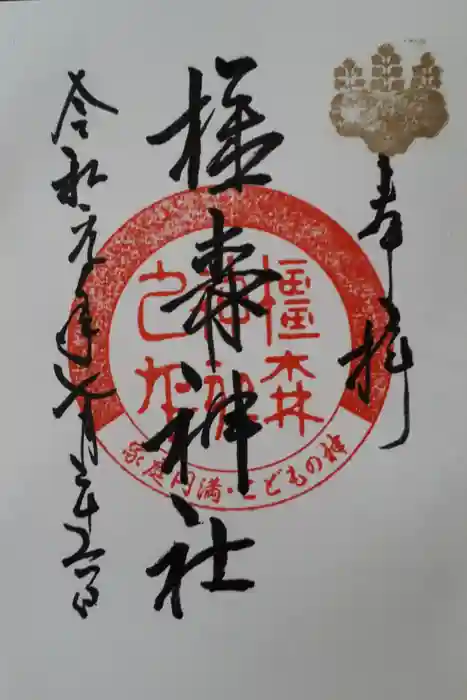 奉拝
橿森神社
令和元年六月二十五日
橿森
神社
家庭円満・こどもの神